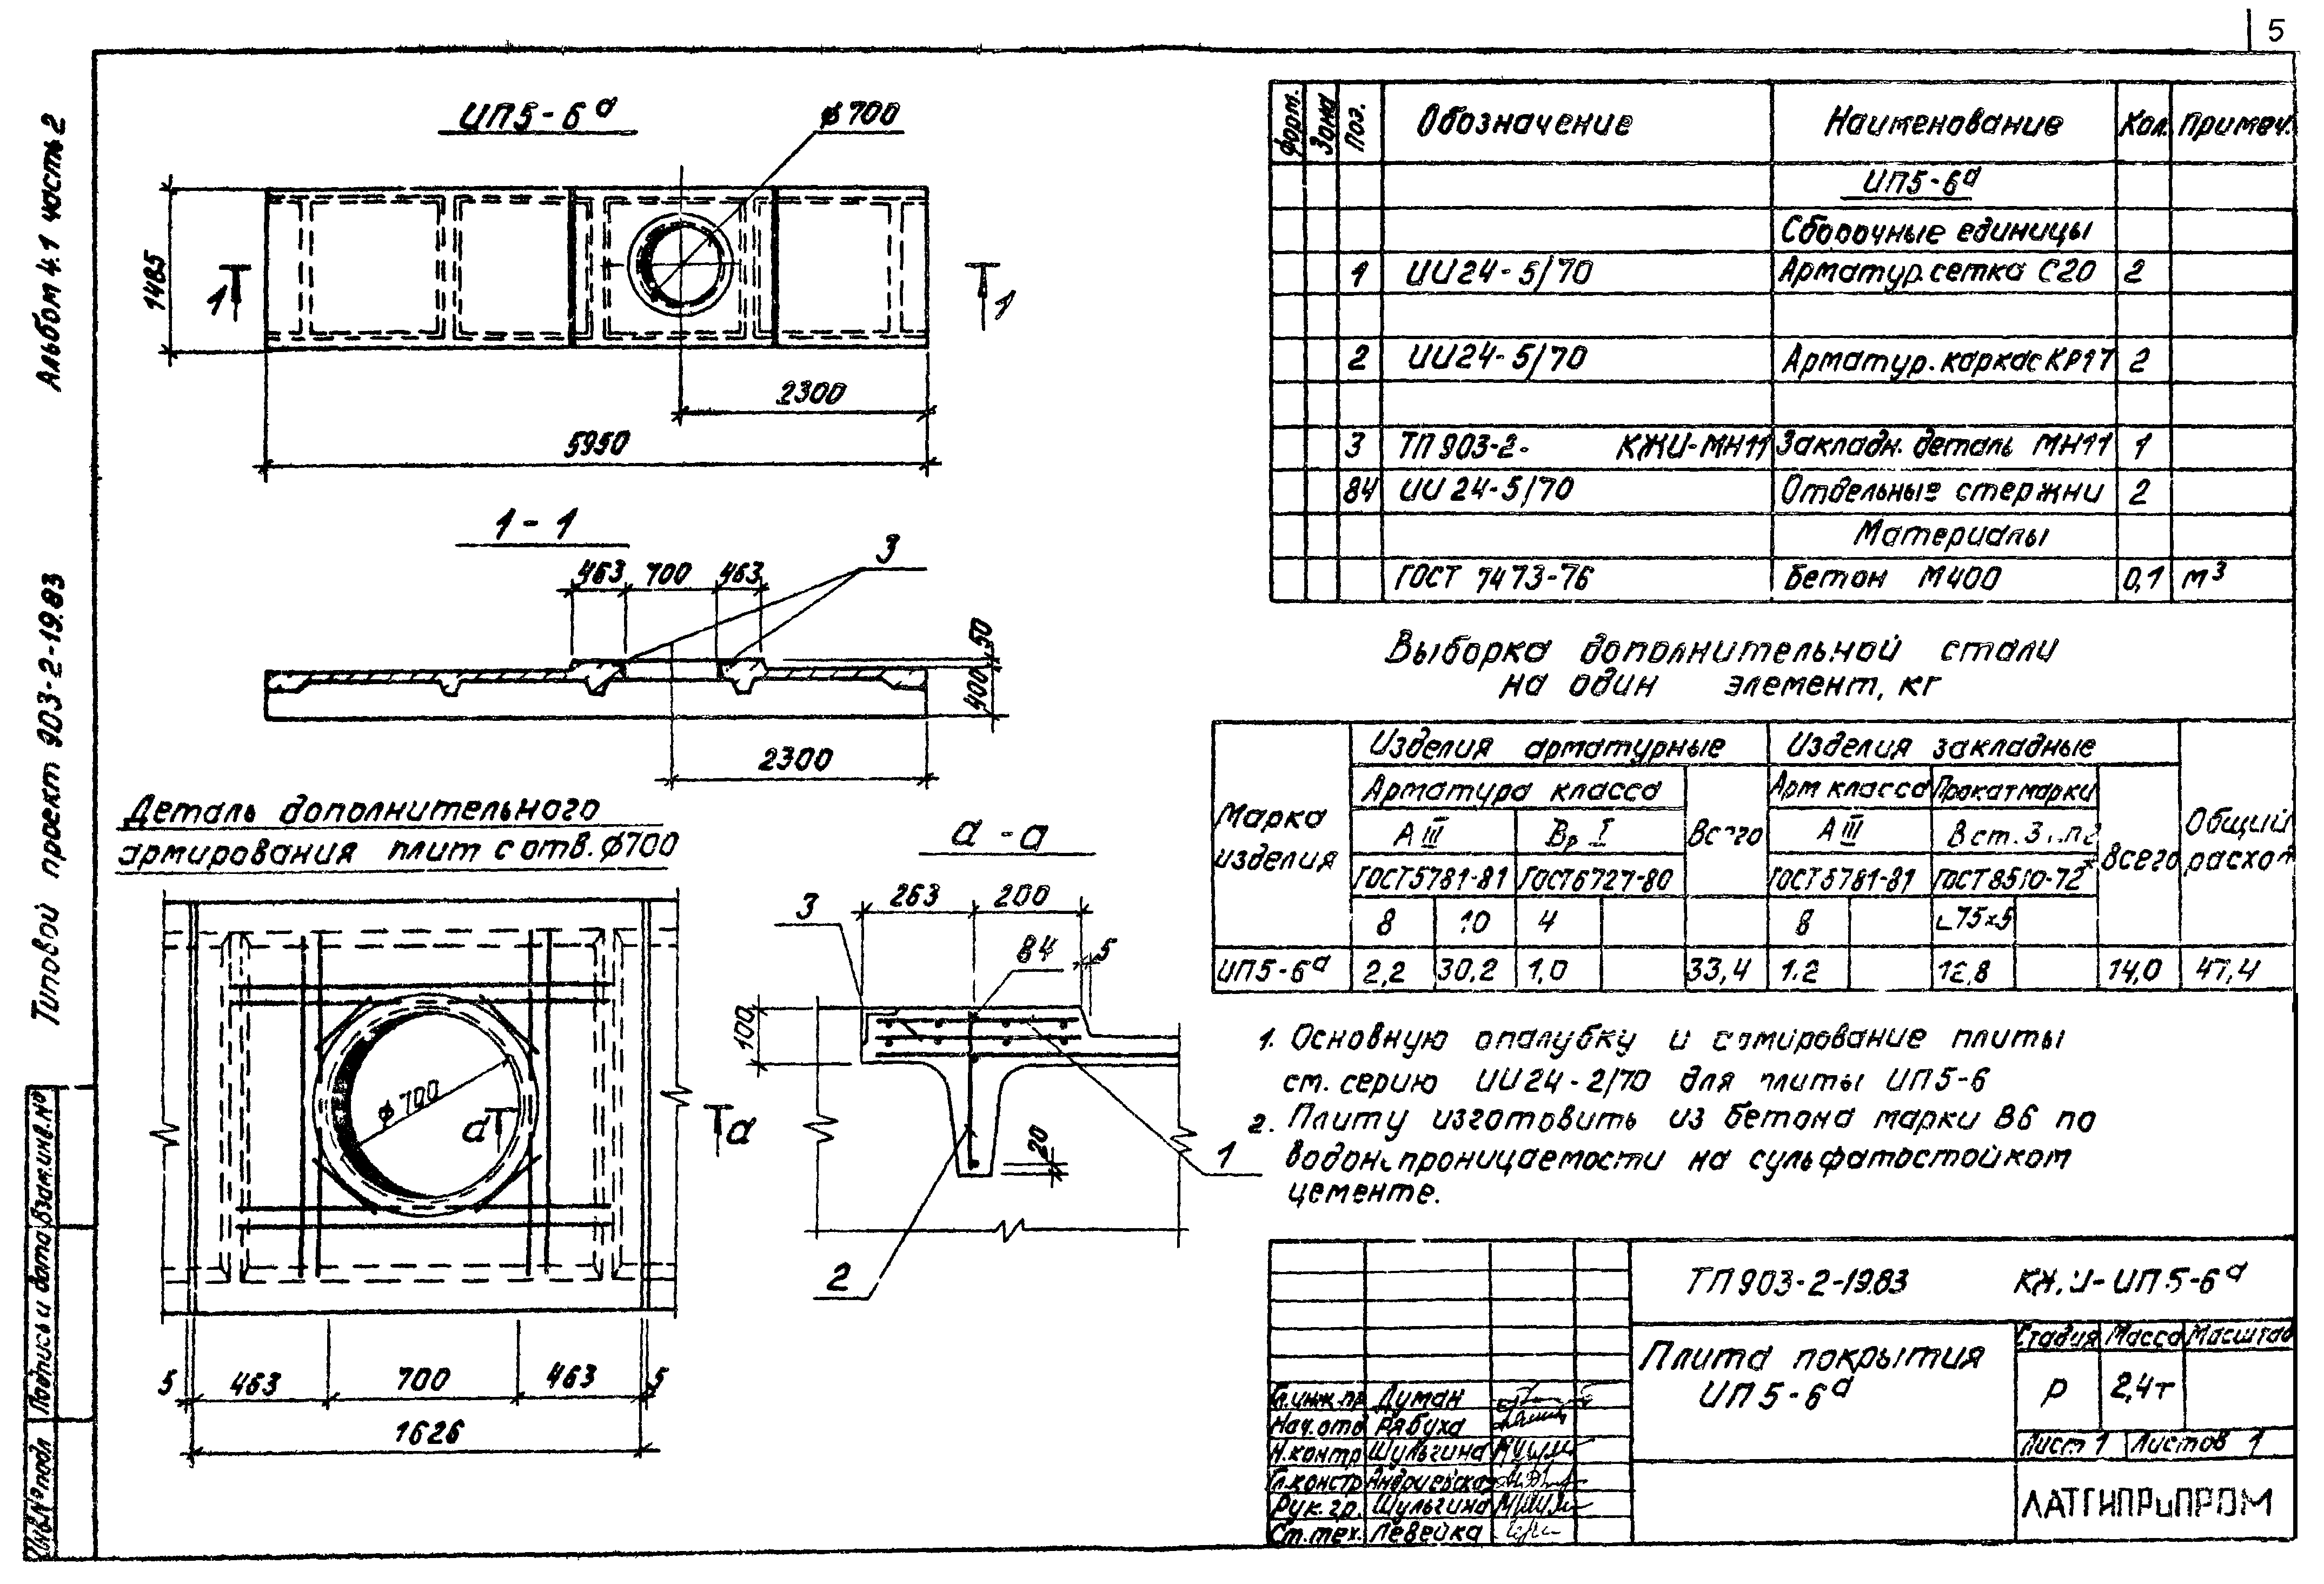 5
Альбом 4.1 часть 2
Типовой проект 903-2-19.83
Взам.инв.№
Подпись и дата
Инв.№подл
ИП5-6а
ф700
1485
1
1
2300
5950
1-1
463 700 463
3
50
400
2300
Деталь дополнительного
армирования плит с отв. ф700
ф700
а
а
5 463 700 463 5
1626
а-а
263 200
3
84
5
100
20
1
2
Форм. Зона Поз. Обозначение Наименование Кол. Примеч.
ИП5-6а
Сборочные единицы
1 ИИ24-5/70 Арматур.сетка С20 2
2 ИИ24-5/70 Арматур.каркас КР17 2
3 ТП903-2- КЖИ-МН11 Закладн.деталь МН11 1
84 ИИ24-5/70 Отдельные стержни 2
Материалы
ГОСТ 7473-76 Бетон М400 0,1 м3
Выборка дополнительной стали
на один элемент, кг
Марка изделия
Изделия арматурные Изделия закладные Общий расход
Арматура класса Всего Арм класса Прокат марки Всего
А III Вр I А III В ст. 3
ГОСТ5781-81 ГОСТ6727-80 ГОСТ5781-81 ГОСТ8510-72*
8 10 4 8 ∟75х5
ИП5-6а 2,2 30,2 1,0 33,4 1.2 12,8 14,0 47,4
1. Основную опалубку и армирование плиты
см. серию ИИ24-2/70 для плиты ИП5-6
2. Плиту изготовить из бетона марки В6 по
водонепроницаемости на сульфатостойком
цементе.
ТП903-2-19.83 КЖ.И-ИП5-6а
Плита покрытия
ИП5-6а
Стадия Масса Масштаб
Р 2,4т
Лист 1 Листов 1
ЛАТГИПРОПРОМ
Гл.инж.пр Думан
Нач.отд Рябуха
Н.контр Шульгина
Гл.констр Андриевская
Рук.гр. Шульгина
Ст.тех. Левейка